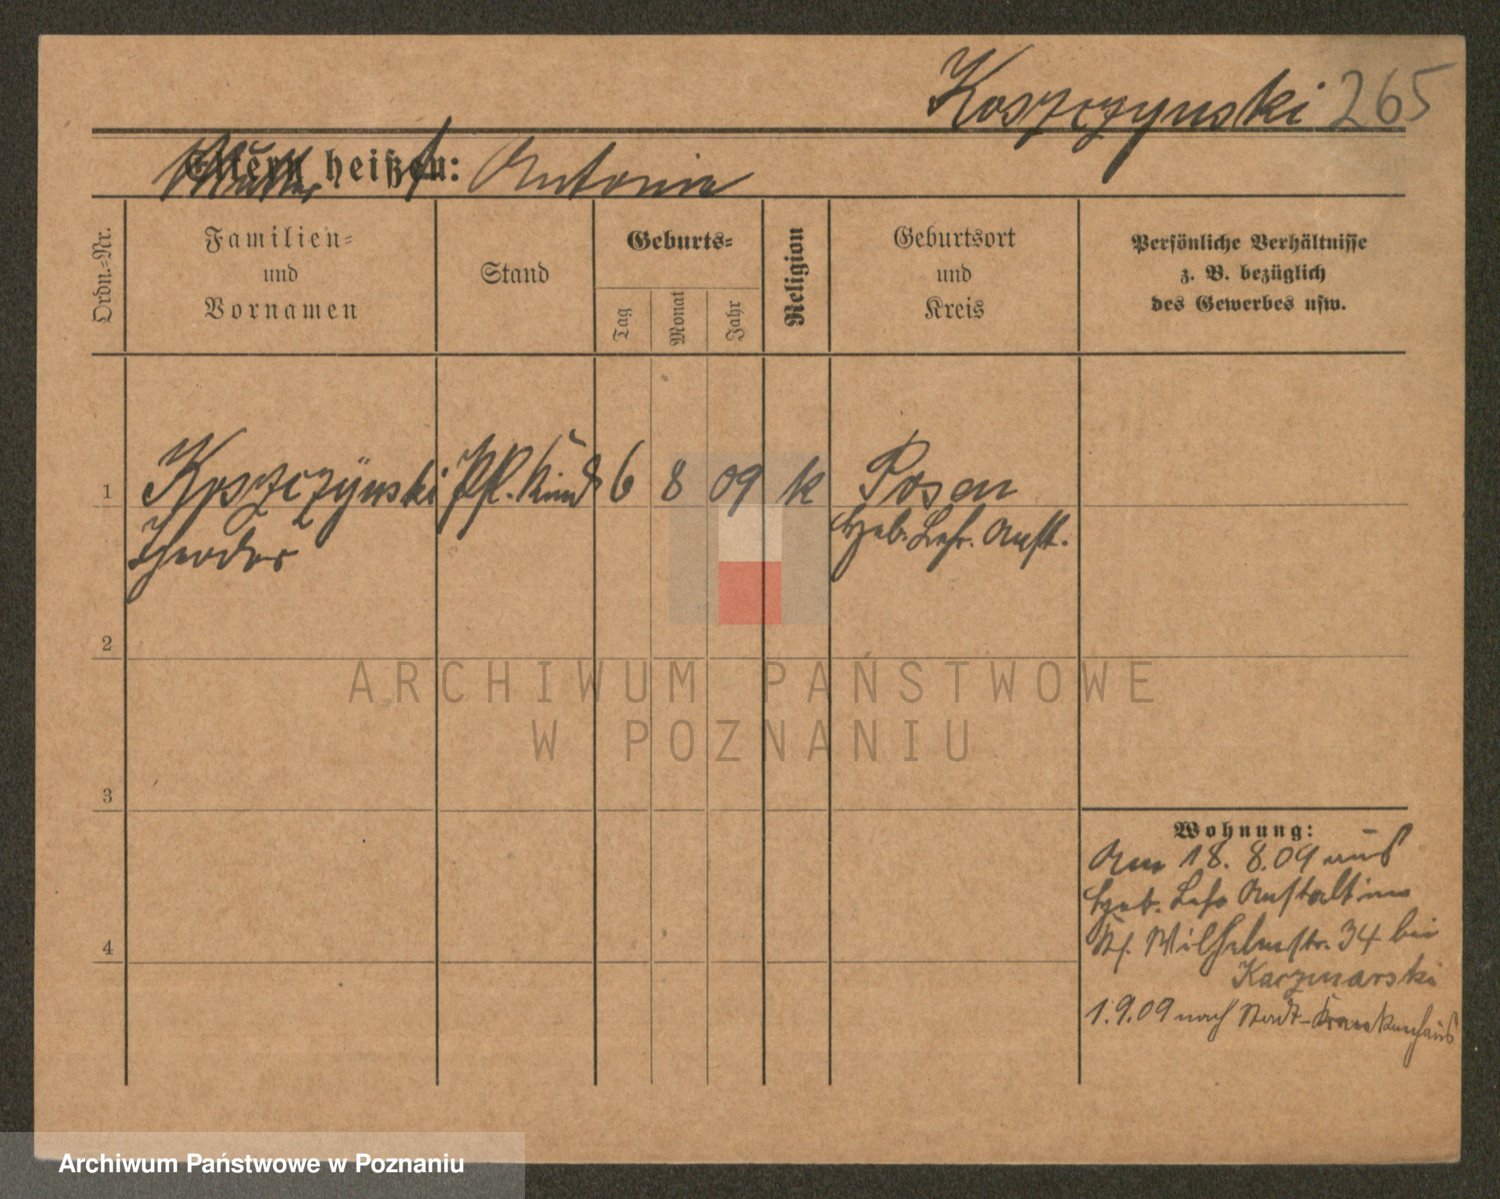 Koszczynski 265
Eltern heißen: Mutter Antonie
Ordn.-Nr.
Familien-
und
Vornamen
Stand
Geburts-
Tag
Monat
Jahr
Religion
Geburtsort
und
Kreis
Persönliche Verhältnisse
z. B. bezüglich
des Gewerbes usw.
1 Koszczynski Pfl. Kind 6 8 09 k Posen
Theodor
Heb. Lehr. Anst.
2
3
4
Wohnung:
Am 18. 8.09 aus
Heb. Lehr Anstalt
St. Wilhelmstr. 34 bei
Kaczmarski
1.9.09 nach Stadt-Krankenhaus
ARCHIWUM PAŃSTWOWE
W POZNANIU
Archiwum Państwowe w Poznaniu